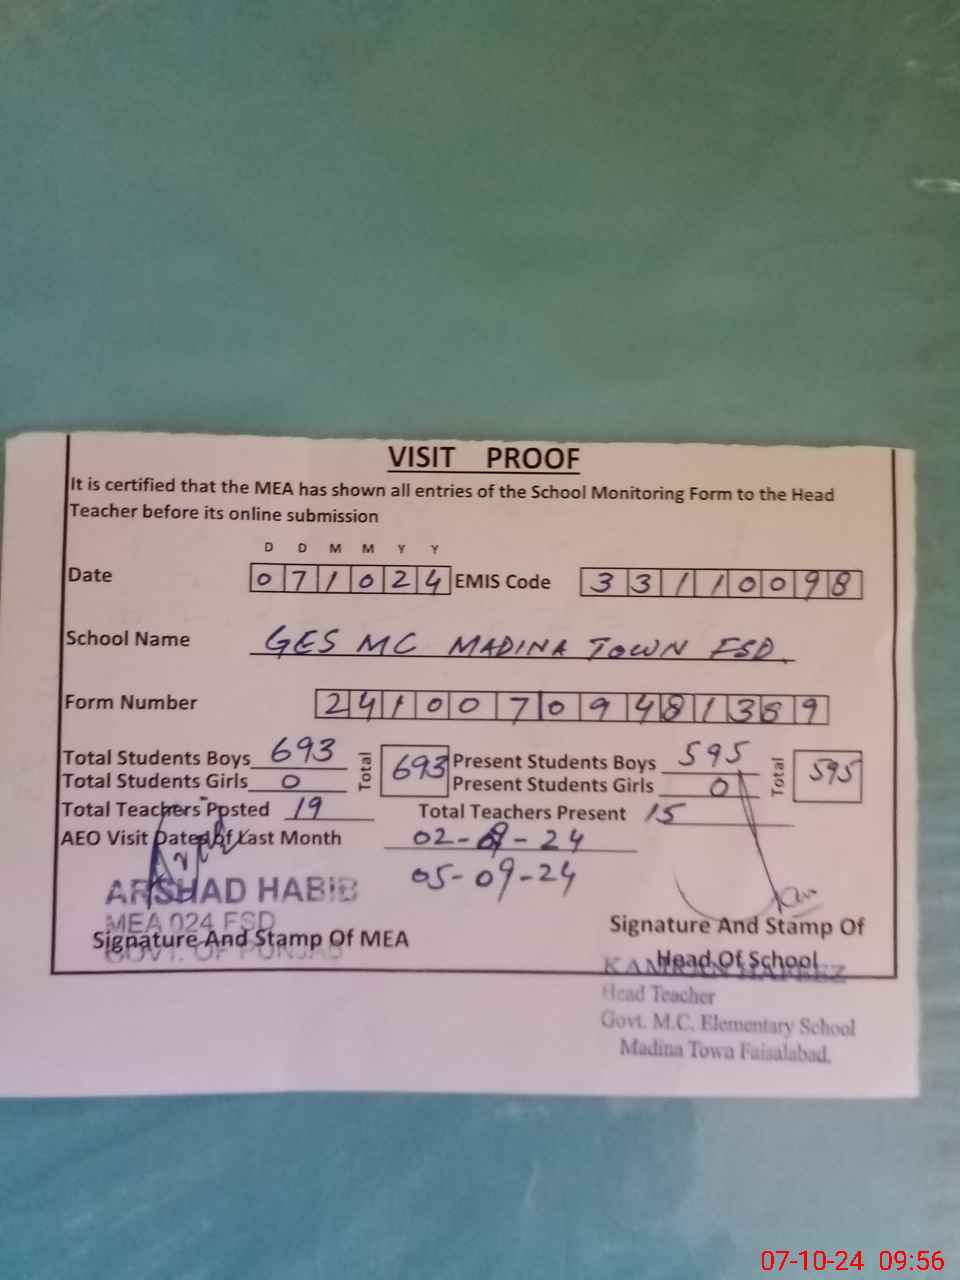 VISIT PROOF
It is certified that the MEA has shown all entries of the School Monitoring Form to the Head
Teacher before its online submission
D D M M Y Y
Date 071024 EMIS Code 33110098
School Name GES MC MADINA TOWN FSD.
Form Number 24100709481389
Total Students Boys 693 Total 693 Present Students Boys 595 Total 595
Total Students Girls 0 Present Students Girls 0
Total Teachers Posted 19 Total Teachers Present 15
AEO Visit Dates of Last Month 02-09-24
05-09-24
ARSHAD HABIB
MEA 024 FSD
Signature And Stamp Of MEA
GOVT. OF PUNJAB
Signature And Stamp Of
Head Of School
HAFEEZ
Head Teacher
Govt. M.C. Elementary School
Madina Town Faisalabad.
07-10-24 09:56